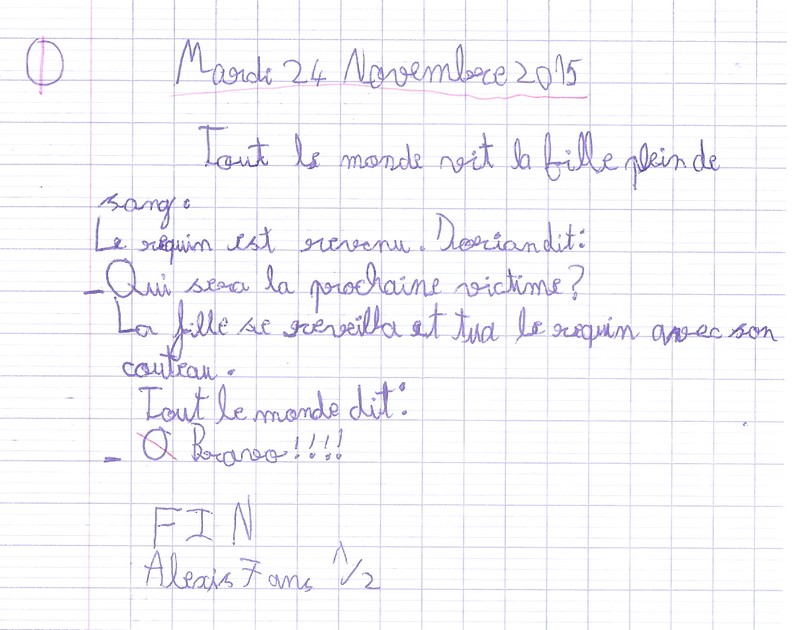 Mardi 24 Novembre 2015
Tout le monde voit la fille plein de
sang.
Le requin est revenu. Dorian dit:
- Qui sera la prochaine victime?
La fille se reveilla et tua le requin avec son
couteau.
Tout le monde dit:
- Bravo!!!!
FIN
Alexis 7 ans 1/2